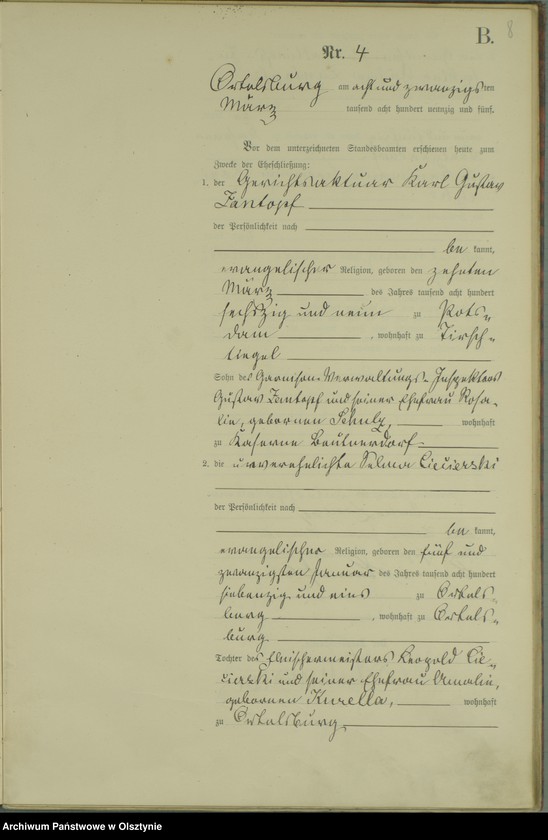 B. 8
Nr. 4
Ortelsburg am acht und zwanzigsten
März tausend acht hundert neunzig und fünf.
Vor dem unterzeichneten Standesbeamten erschienen heute zum
Zwecke der Eheschließung:
1. der Gerichtsaktuar Karl Gustav
Jantopf
der Persönlichkeit nach
be kannt,
evangelischer Religion, geboren den zehnten
März des Jahres tausend acht hundert
sechszig und neun zu Pots-
dam, wohnhaft zu Tirsch-
tiegel
Sohn des Garnison-Verwaltungs-Inspektors
Gustav Jantopf und seiner Ehefrau Rosa-
lie, gebornen Schulz, wohnhaft
zu Kaserne Beutnerdorf
2. die unverehelichte Selma Ciecierski
der Persönlichkeit nach
be kannt,
evangelischer Religion, geboren den fünf und
zwanzigsten Januar des Jahres tausend acht hundert
siebenzig und eins zu Ortels-
burg, wohnhaft zu Ortels-
burg.
Tochter des Fleischermeisters Leopold Cie-
cierski und seiner Ehefrau Amalie,
gebornen Kurella, wohnhaft
zu Ortelsburg
Archiwum Państwowe w Olsztynie